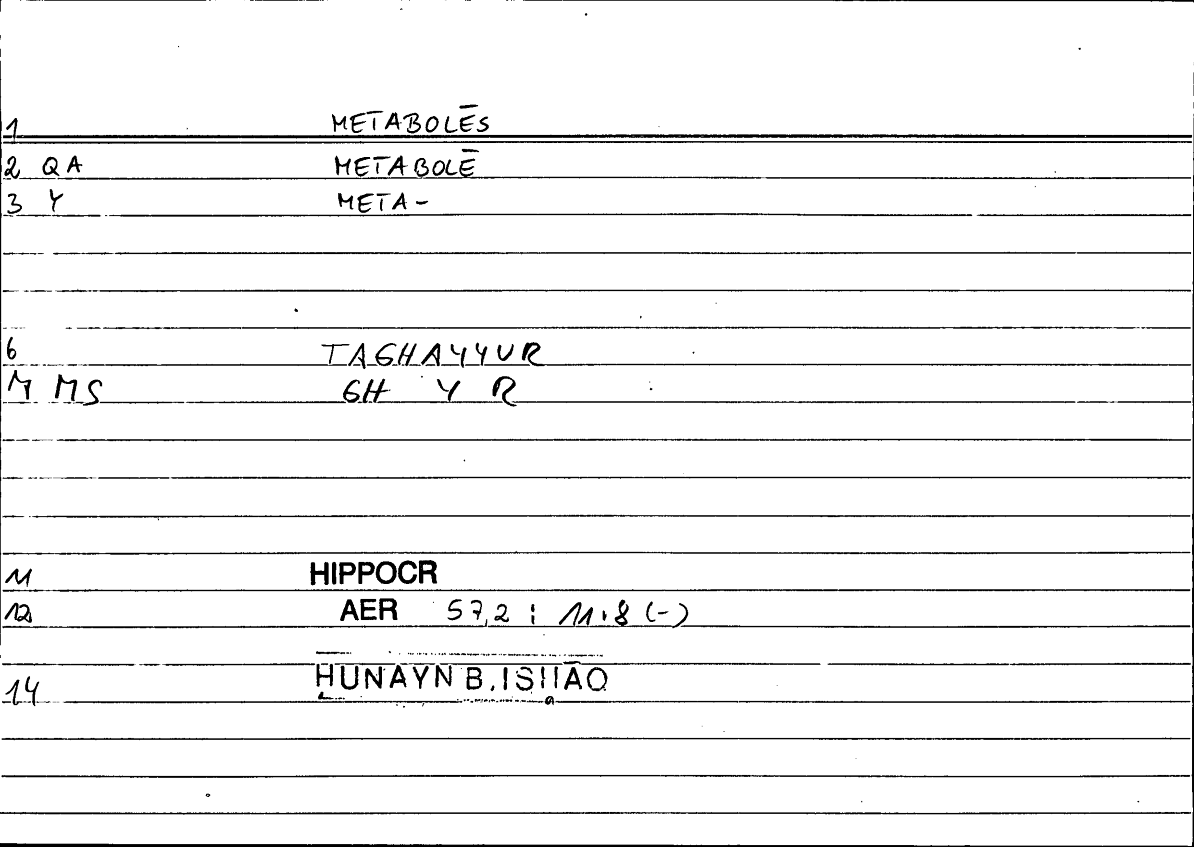 1 METABOLĒS
2 QA METABOLĒ
3 Y META-
6 TAGHAYYUR
7 MS GH Y R
11 HIPPOCR
12 AER 57,2 : 11.8 (-)
14 ḤUNAYN B. ISḤĀQ